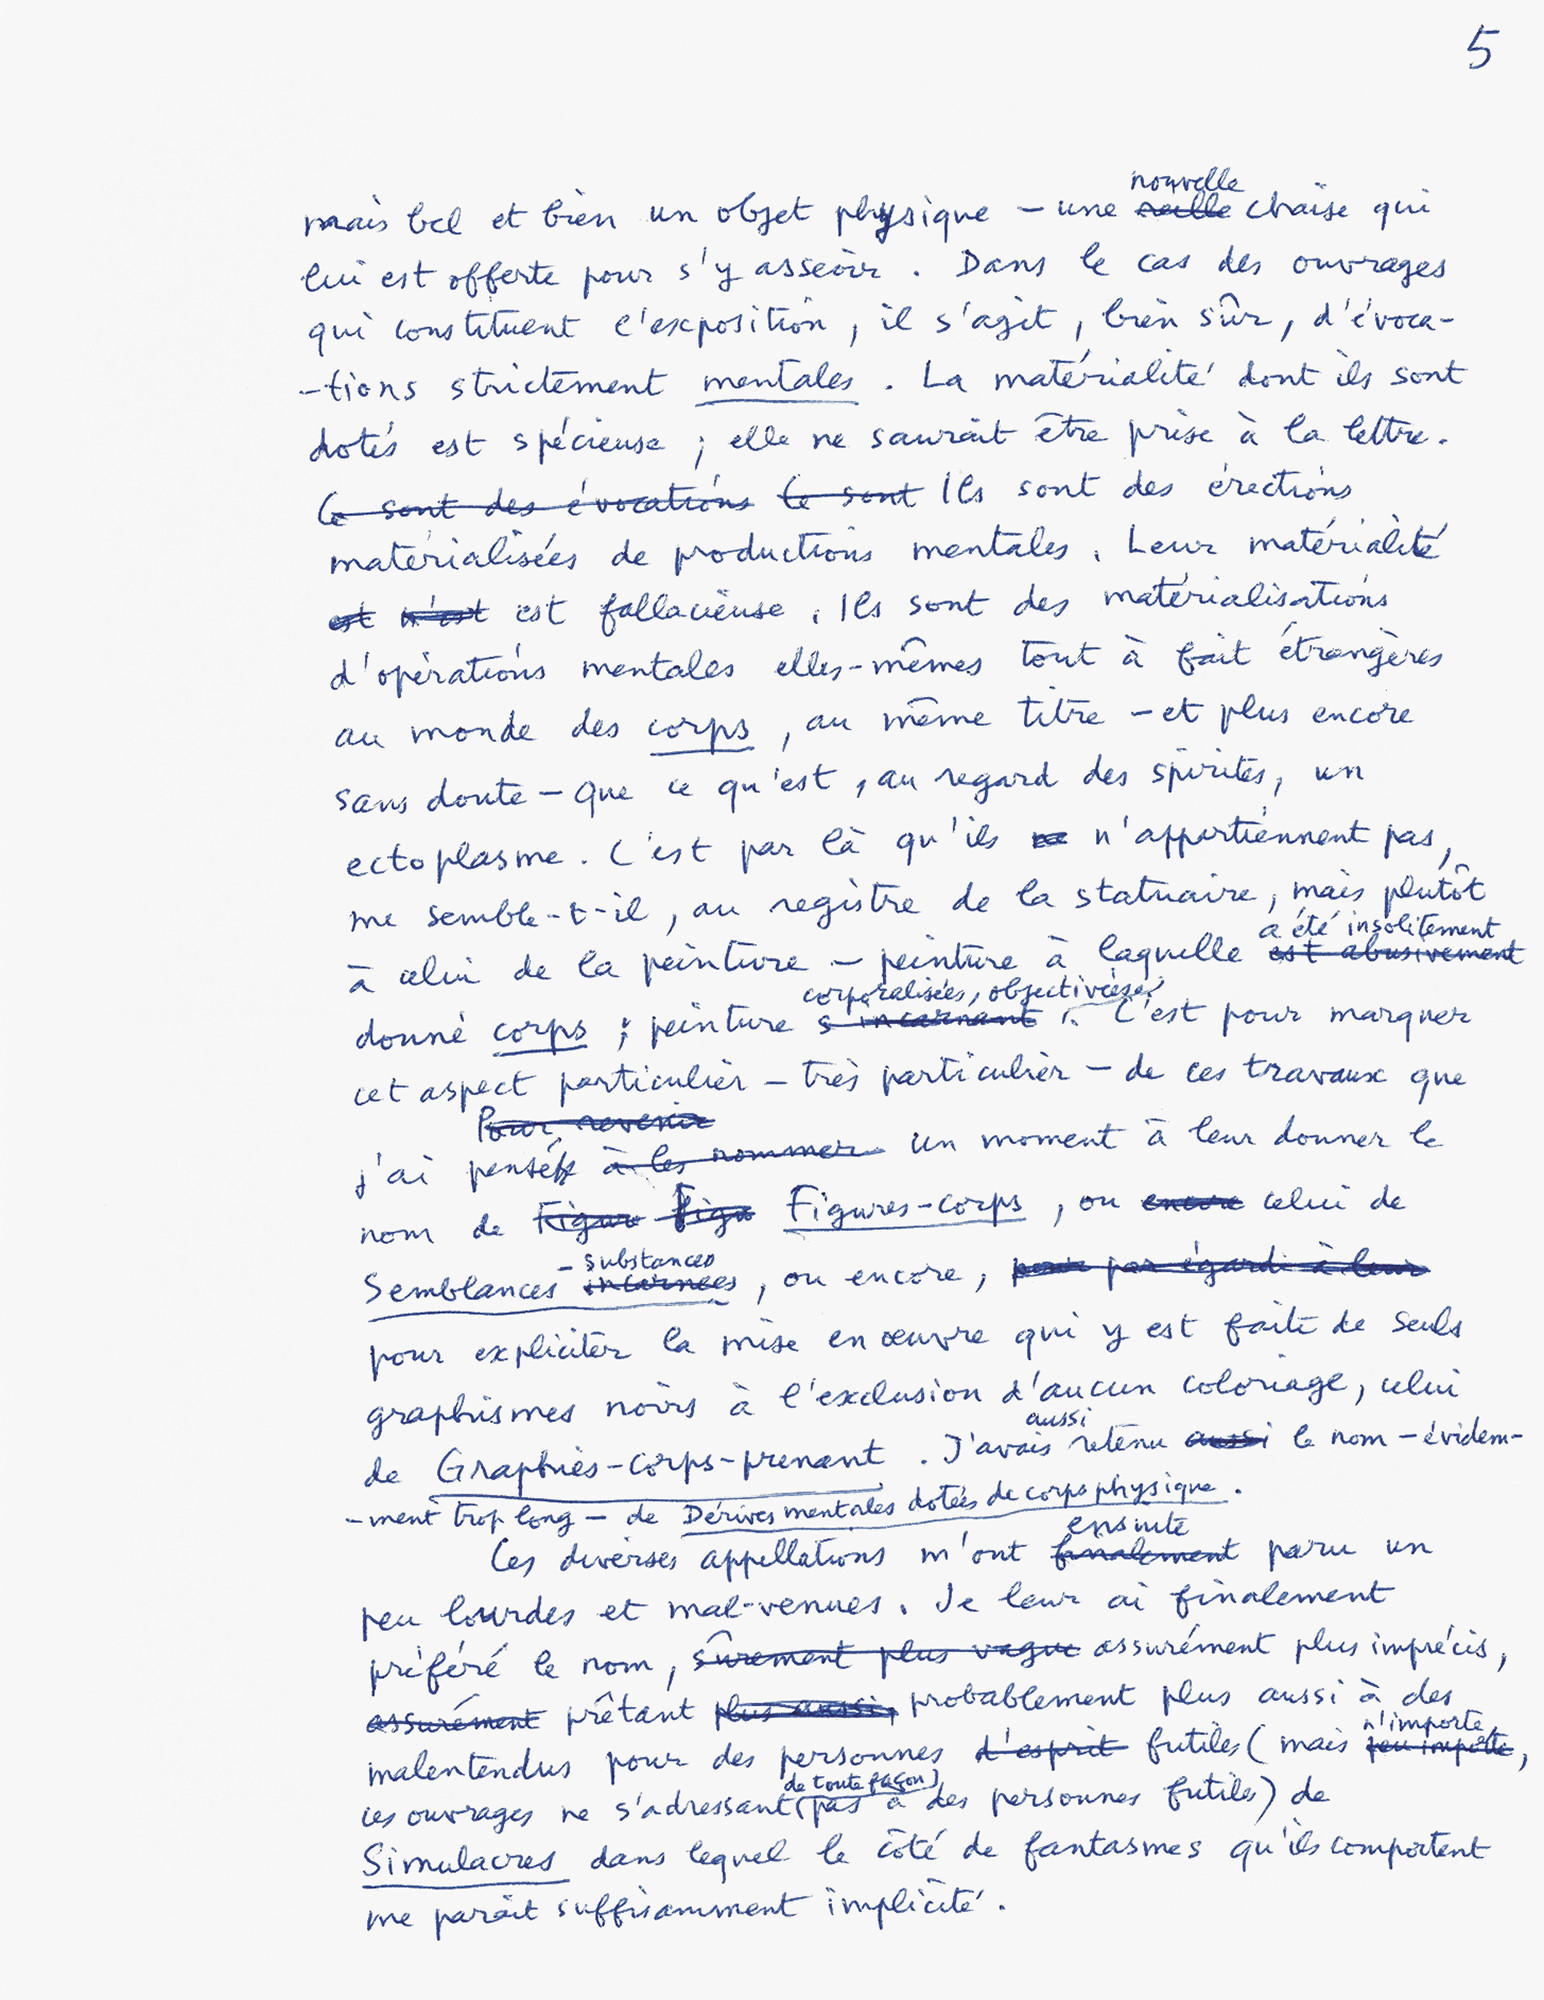 5
nouvelle
mais bel et bien un objet physique – une réelle chaise qui
lui est offerte pour s'y asseoir. Dans le cas des ouvrages
qui constituent l'exposition, il s'agit, bien sûr, d'évoca-
-tions strictement mentales. La matérialité dont ils sont
dotés est spécieuse ; elle ne saurait être prise à la lettre.
Ce sont des évocations Ce sont Ils sont des érections
matérialisées de productions mentales. Leur matérialité
est n'est est fallacieuse. Ils sont des matérialisations
d'opérations mentales elles-mêmes tout à fait étrangères
au monde des corps, au même titre – et plus encore
sans doute – que ce qu'est, au regard des spirites, un
ectoplasme. C'est par là qu'ils ne n'appartiennent pas,
me semble-t-il, au registre de la statuaire, mais plutôt
a été insolitement
à celui de la peinture – peinture à laquelle est abusivement
corporalisées, objectivées
donné corps ; peinture s'incarnant. C'est pour marquer
cet aspect particulier – très particulier – de ces travaux que
Pour revenir
j'ai pensé à les nommer un moment à leur donner le
nom de Figure Figu Figures-corps, ou encore celui de
-substances
Semblances incarnées, ou encore, pour par égard à leur
pour expliciter la mise en œuvre qui y est faite de seuls
graphismes noirs à l'exclusion d'aucun coloriage, celui
aussi
de Graphies-corps-prenant. J'avais retenu aussi le nom – évidem-
-ment trop long – de Dérives mentales dotées de corps physique.
ensuite
Ces diverses appellations m'ont finalement paru un
peu lourdes et mal-venues. Je leur ai finalement
préféré le nom, sûrement plus vague assurément plus imprécis,
assurément prêtant plus aussi, probablement plus aussi à des
n'importe
malentendus pour des personnes d'esprit futiles (mais peu importe,
de toute façon
ces ouvrages ne s'adressant (pas à des personnes futiles) de
Simulacres dans lequel le côté de fantasmes qu'ils comportent
me paraît suffisamment implicité.